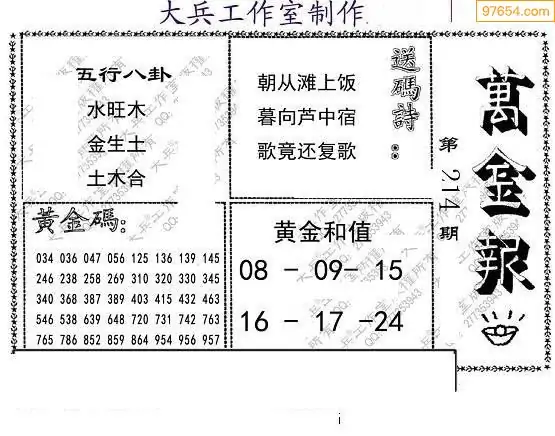 大兵工作室制作
97654.com
五行八卦
水旺木
金生土
土木合
朝从滩上饭
暮向芦中宿
歌竟还复歌
送碼詩:
第214期
萬金報
黄金碼:
034 036 047 056 125 136 139 145
246 238 258 269 310 320 330 345
340 368 387 389 403 415 432 463
546 538 639 648 720 731 742 763
765 786 852 859 864 954 956 957
黄金和值
08 - 09- 15
16 - 17 -24
i